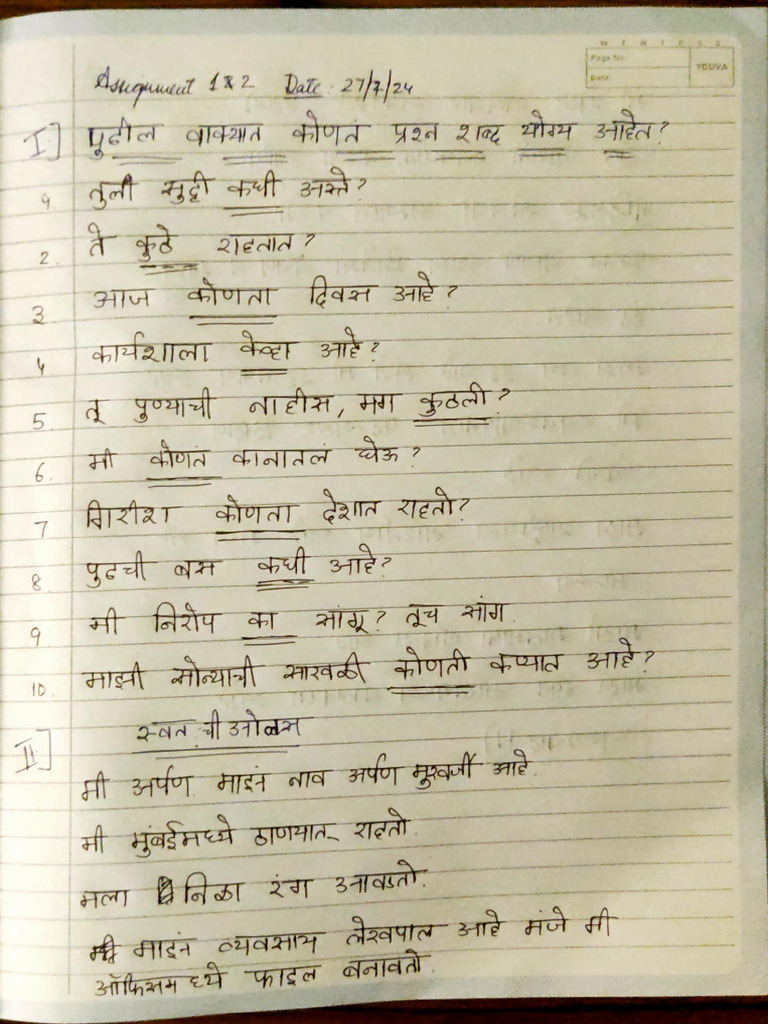 MINTESS
Page No.
Date:
YOUVA
Assignment 1 & 2 Date: 27/7/24
I] पुढील वाक्यात कोणतं प्रश्न शब्द योग्य आहेत?
१ तुली सुट्टी कधी असते?
2. ते कुठे राहतात?
3 आज कोणता दिवस आहे?
4 कार्यशाला केव्हा आहे?
5. तू पुण्याची नाहीस, मग कुठली?
6. मी कोणतं कानातलं घेऊ?
7 गिरीश कोणता देशात राहतो?
8. पुढची बस कधी आहे?
9 मी निरोप का सांगू? तूच सांग.
10. माझी सोन्याची साखळी कोणती कप्यात आहे?
II] स्वत:ची ओळख
मी अर्पण. माझं नाव अर्पण मुखर्जी आहे.
मी मुंबईमध्ये ठाणयात राहतो.
मला निळा रंग आवडतो.
माझं व्यवसाय लेखपाल आहे मंजे मी
ऑफिसमध्ये फाइल बनावतो.